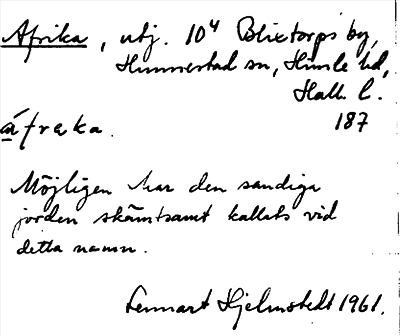 Afrika, utj. 10⁴ Blixtorps by,
Hunnestad sn, Himle hd,
Hall. l.
187
áfraka.
Möjligen har den sandiga
jorden skämtsamt kallats vid
detta namn.
Lennart Hjelmstedt 1961.